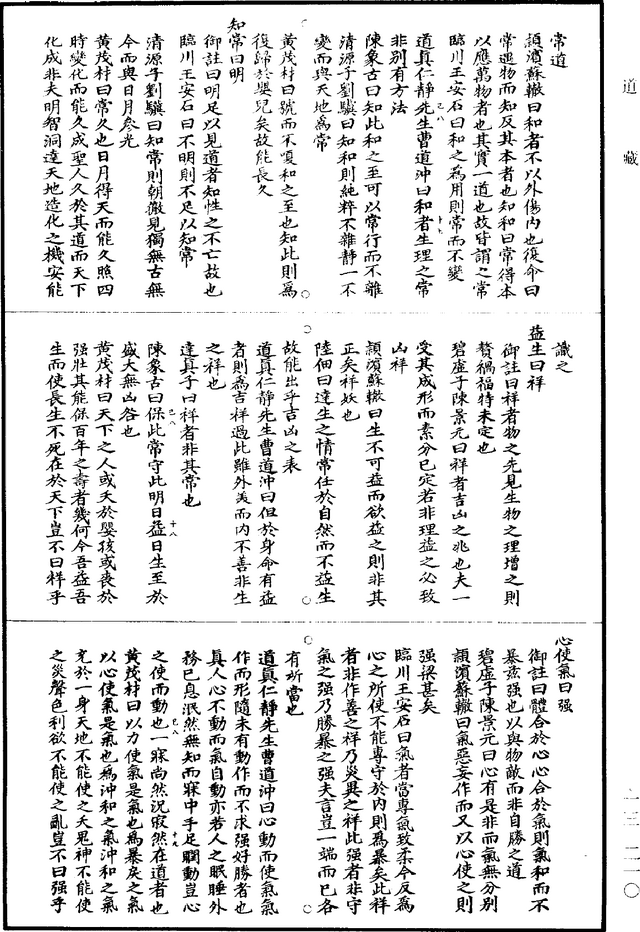 道藏
常道
頴濱蘇轍曰和者不以外傷內也復命曰
常遇物而知反其本者也知和曰常得本
以應萬物者也其實一道也故皆謂之常
臨川王安石曰和之為用則常而不變
道真仁靜先生曹道沖曰和者生理之常
非别有方法
陳象古曰知此和之至可以常行而不離
清源子劉驥曰知和則純粹不雜靜一不
變而與天地為常
黃茂材曰號而不嗄和之至也知此則為
復歸於嬰兒矣故能長久
知常曰明
御註曰明足以見道者知性之不亡故也
臨川王安石曰不明則不足以知常
清源子劉驥曰知常則朝徹見獨無古無
今而與日月參光
黃茂材曰常久也日月得天而能久照四
時變化而能久成聖人久於其道而天下
化成非夫明智洞達天地造化之機安能
識之
益生曰祥
御註曰祥者物之先見生物之理增之則
贅禍福特未定也
碧虛子陳景元曰祥者吉凶之兆也夫一
受其成形而素分已定若非理益之必致
凶祥
頴濱蘇轍曰生不可益而欲益之則非其
正矣祥妖也
陸佃曰達生之情常任於自然而不益生
故能出乎吉凶之表
道真仁靜先生曹道沖曰但於身命有益
者則為吉祥過此雖外美而內不善非生
之祥也
達真子曰祥者非其常也
陳象古曰保此常守此明日益日生至於
盛大無凶咎也
黃茂材曰天下之人或夭於嬰孩或喪於
强壯其能保百年之壽者幾何今吾益吾
生而使長生不死在於天下豈不曰祥乎
心使氣曰强
御註曰體合於心心合於氣則氣和而不
暴玆强也以與物敵而非自勝之道
碧虛子陳景元曰心有是非而氣無分别
頴濱蘇轍曰氣惡妄作而又以心使之則
强梁甚矣
臨川王安石曰氣者當專氣致柔今反為
心之所使不能專守於內則為暴矣此祥
者非作善之祥乃災異之祥此强者非守
氣之强乃勝暴之强夫言豈一端而已各
有所當也
道真仁靜先生曹道沖曰心動而使氣氣
作而形隨未有動作而不求强好勝者也
真人心不動而氣自動亦若人之眠睡外
務已息泯然無知而寐中手足瞤動豈心
之使而動也一寐尚然況寂然在道者也
黃茂材曰以力使氣是氣也為暴戾之氣
以心使氣是氣也為沖和之氣沖和之氣
充於一身天地不能使之夭鬼神不能使
之災聲色利欲不能使之亂豈不曰强乎
一三—二一〇